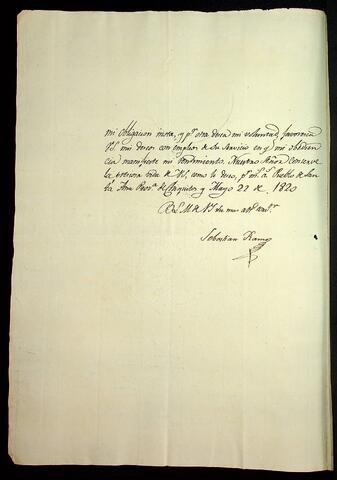 mi obligacion insta, y pr. otra desea mi voluntad, favoresca
Vs. mis deseos con empleos de su servicio en q. mi obedien
cia manifieste mi rendimiento. Nuestro Señor conserve
la preciosa vida de VS, como lo deseo, pr. ms. as. Pueblo de San
ta Ana Prova. de Chiquitos y Mayo 22 de 1820
B. L. M. de VS. su mas
Sebastian Ramos